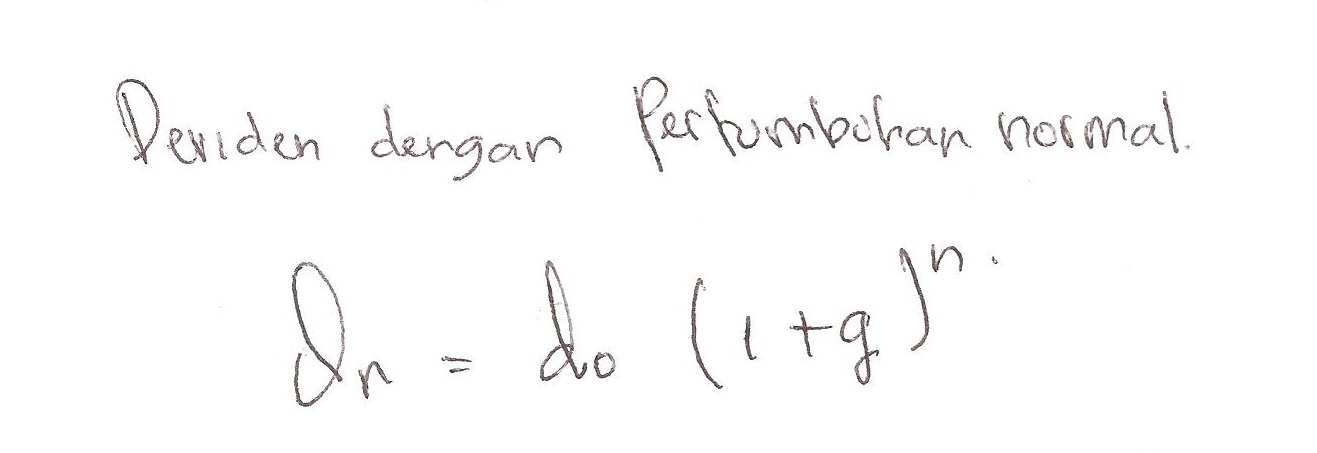 Deviden dengan Pertumbuhan normal.
Dn = do (1+g)^n.